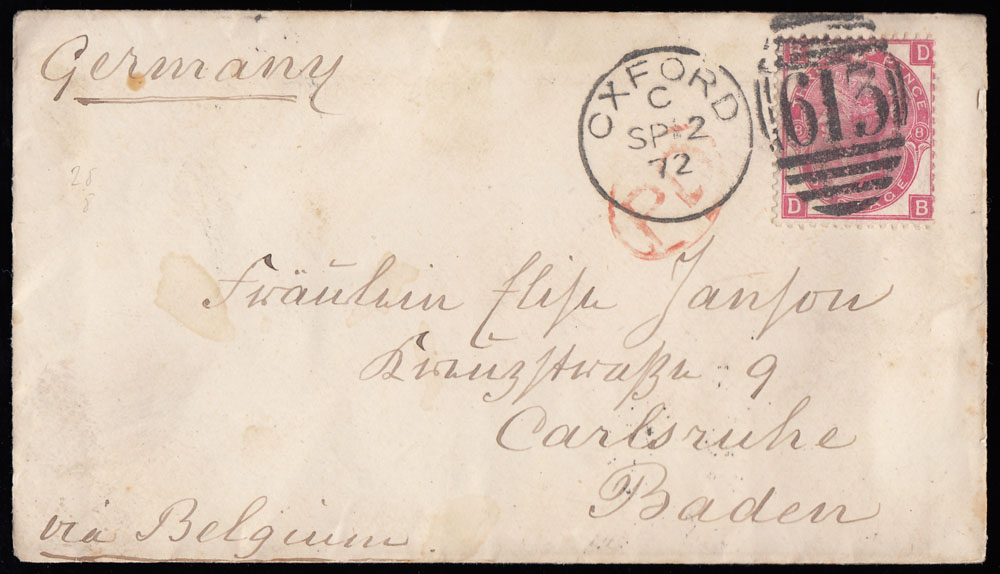 Germany
OXFORD
C
SP 12
72
613
D
PENCE
8
AGE
D B
28
8
Fräulein Elise Janson
Kreuzstraße 9
Carlsruhe
Baden
via Belgium